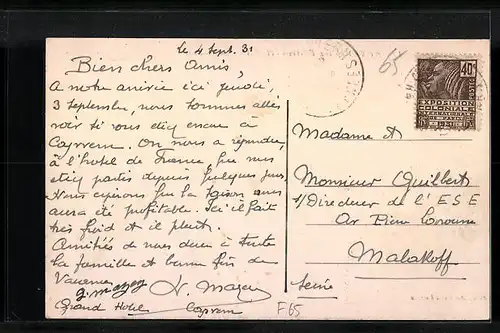 le 4 Sept. 31
Bien chers Amis,
A notre arrivée ici jeudi,
3 Septembre, nous sommes allés
voir si vous étiez encore à
Capvern. On nous a répondu,
à l'hotel de France, que vous
étiez partis depuis quelques jours.
Nous espérons que la saison vous
aura été profitable. Ici il fait
très froid et il pleut.
Amitiés de nous deux à toute
la famille et bonne fin de
Vacances
Grand Hotel Capvern
65
40c
POSTES
EXPOSITION
COLONIALE
INTERNATIONALE
Madame et
Monsieur Quilbert
s/Directeur de l'ESE
Malakoff
Seine
F65